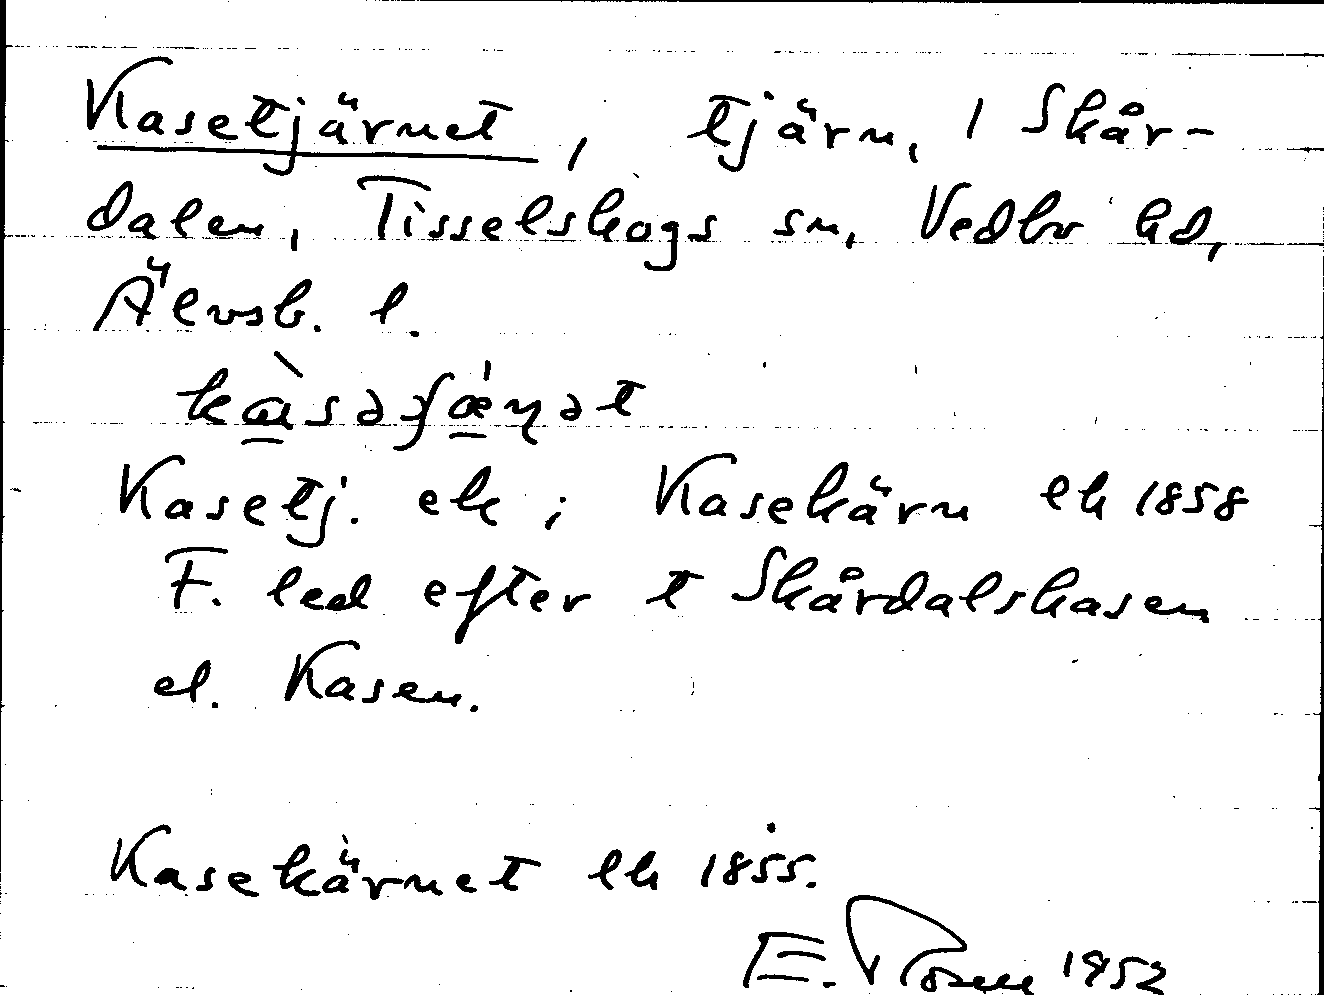 Kasetjärnet, tjärn, i Skår-
dalen, Tisselskogs sn, Vedbo hd,
Älvsb. l.
Kasetj. ek; Kasekärn lk 1858
F. led efter t Skårdalskasen
el. Kasen.
Kasekärnet lk 1855.
E. 1952